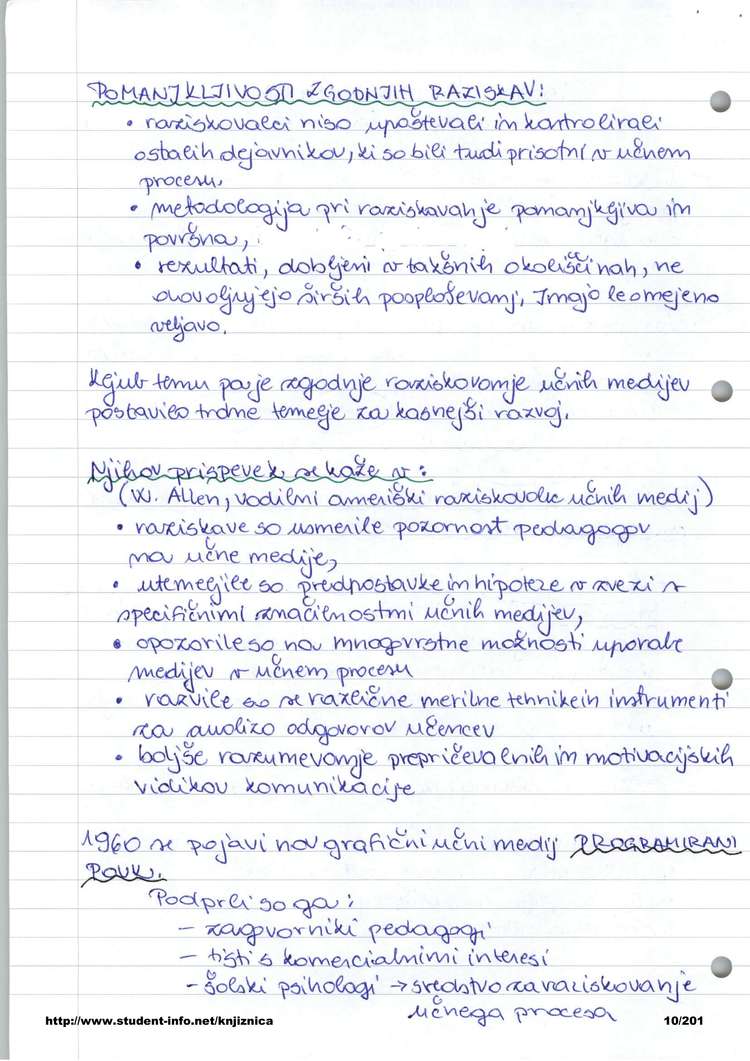 POMANJKLJIVOSTI ZGODNJIH RAZISKAV:
• raziskovalci niso upoštevali in kontrolirali
ostalih dejavnikov, ki so bili tudi prisotni v učnem
procesu,
• metodologija pri raziskavah je pomanjkljiva in
površna,
• rezultati, dobljeni v takšnih okoliščinah, ne
dovoljujejo širših posploševanj, Imajo le omejeno
veljavo.
Kljub temu pa je zgodnje raziskovanje učnih medijev
postavilo trdne temelje za kasnejši razvoj.
Njihov prispevek se kaže v:
(W. Allen, vodilni ameriški raziskovalec učnih medij)
• raziskave so usmerile pozornost pedagogov
na učne medije,
• utemeljile so predpostavke in hipoteze v zvezi s
specifičnimi značilnostmi učnih medijev,
• opozorile so na mnogovrstne možnosti uporabe
medijev v učnem procesu
• razvile so se različne merilne tehnike in instrumenti
za analizo odgovorov učencev
• boljše razumevanje prepričevalnih in motivacijskih
vidikov komunikacije
1960 se pojavi nov grafični učni medij PROGRAMIRANI
POUK.
Podprli so ga:
- zagovorniki pedagogi
- tisti s komercialnimi interesi
- šolski psihologi → sredstvo za raziskovanje
učnega procesa
http://www.student-info.net/knjiznica 10/201